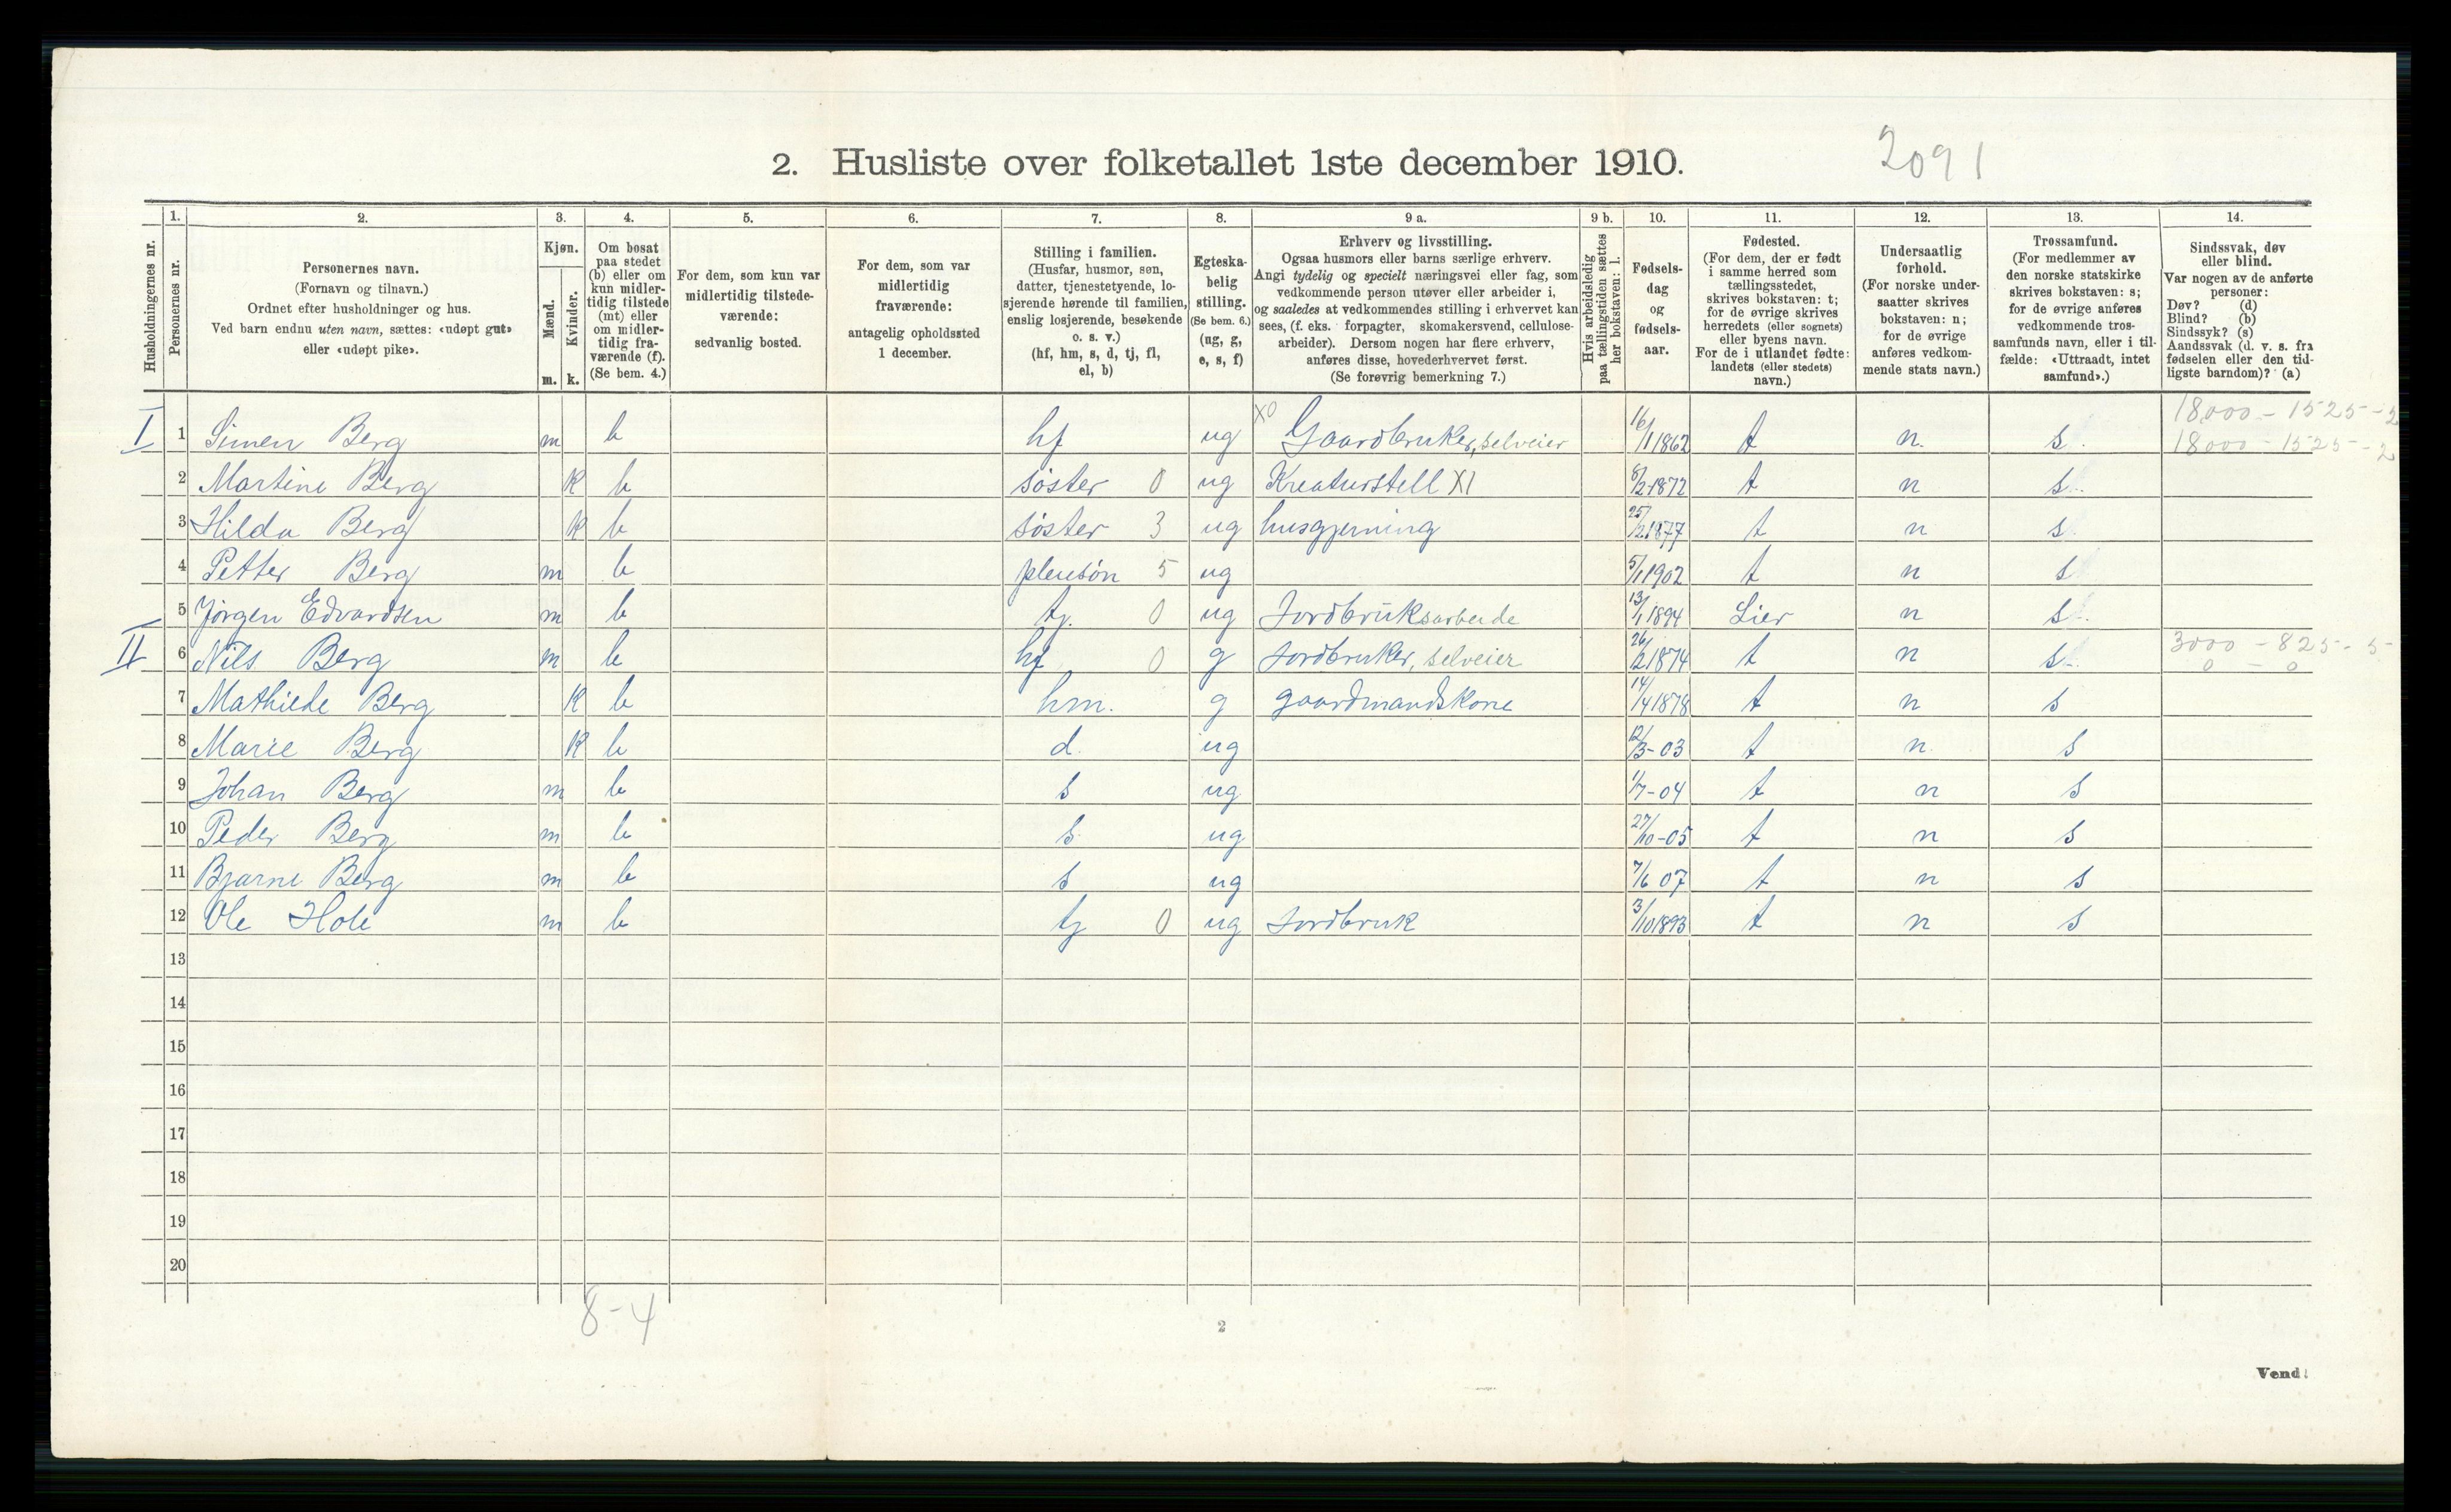 2. Husliste over folketallet 1ste december 1910.
2091
Husholdningernes nr.
1. Personernes nr.
2. Personernes navn.
(Fornavn og tilnavn.)
Ordnet efter husholdninger og hus.
Ved barn endnu uten navn, sættes: «udøpt gut»
eller «udøpt pike».
3. Kjøn.
Mænd. m.
Kvinder. k.
4. Om bosat
paa stedet
(b) eller om
kun midler-
tidig tilstede
(mt) eller
om midler-
tidig fra-
værende (f).
(Se bem. 4.)
5. For dem, som kun var
midlertidig tilstede-
værende:
sedvanlig bosted.
6. For dem, som var
midlertidig
fraværende:
antagelig opholdssted
1 december.
7. Stilling i familien.
(Husfar, husmor, søn,
datter, tjenestetyende, lo-
sjerende hørende til familien,
enslig losjerende, besøkende
o. s. v.)
(hf, hm, s, d, tj, fl,
el, b)
8. Egteska-
belig
stilling.
(Se bem. 6.)
(ug, g,
e, s, f)
9 a. Erhverv og livsstilling.
Ogsaa husmors eller barns særlige erhverv.
Angi tydelig og specielt næringsvei eller fag, som
vedkommende person utøver eller arbeider i,
og saaledes at vedkommendes stilling i erhvervet kan
sees, (f. eks. forpagter, skomakersvend, cellulose-
arbeider). Dersom nogen har flere erhverv,
anføres disse, hovederhvervet først.
(Se forøvrig bemerkning 7.)
9 b. Hvis arbeidsledig
paa tællingstiden sættes
her bokstaven: l.
10. Fødsels-
dag
og
fødsels-
aar.
11. Fødested.
(For dem, der er født
i samme herred som
tællingsstedet,
skrives bokstaven: t;
for de øvrige skrives
herredets (eller sognets)
eller byens navn.
For de i utlandet fødte:
landets (eller stedets)
navn.)
12. Undersaatlig
forhold.
(For norske under-
saatter skrives
bokstaven: n;
for de øvrige
anføres vedkom-
mende stats navn.)
13. Trossamfund.
(For medlemmer av
den norske statskirke
skrives bokstaven: s;
for de øvrige anføres
vedkommende tros-
samfunds navn, eller i til-
fælde: «Uttraadt, intet
samfund».)
14. Sindssvak, døv
eller blind.
Var nogen av de anførte
personer:
Døv? (d)
Blind? (b)
Sindssyk? (s)
Aandssvak (d. v. s. fra
fødselen eller den tid-
ligste barndom)? (a)
18,000 - 1525 - 2
I 1 Simen Berg m b hf ug X0 Gaardbruker, selveier 16/1 1862 t n. s. 18000 - 1525 - 2
2 Martine Berg K b søster 0 ug Kreaturstell X1 8/2 1872 t n s.
3 Hilda Berg K b søster 3 ug husgjerning 25/2 1877 t n s.
4 Petter Berg m b pleiesøn 5 ug 5/1 1902 t n s
5 Jørgen Edvardsen m b tj. 0 ug Jordbruksarbeide 13/1 1894 Lier n s.
II 6 Nils Berg m b hf 0 g Jordbruker, selveier 26/2 1874 t n s. 3000 - 825 - 5 -
0 - 0
7 Mathilde Berg K b hm. g gaardmandskone 14/4 1878 t n s
8 Marie Berg K b d. ug 12/3 - 03 t n. s
9 Johan Berg m b s ug 1/7 - 04 t n s
10 Peder Berg m b s ug 27/10 - 05 t n s
11 Bjarne Berg m b s ug 7/6 07 t n s
12 Ole Hole m b tj 0 ug Jordbruk 3/10 1893 t n s
13
14
15
16
17
18
19
20
8 - 4
2
Vend!